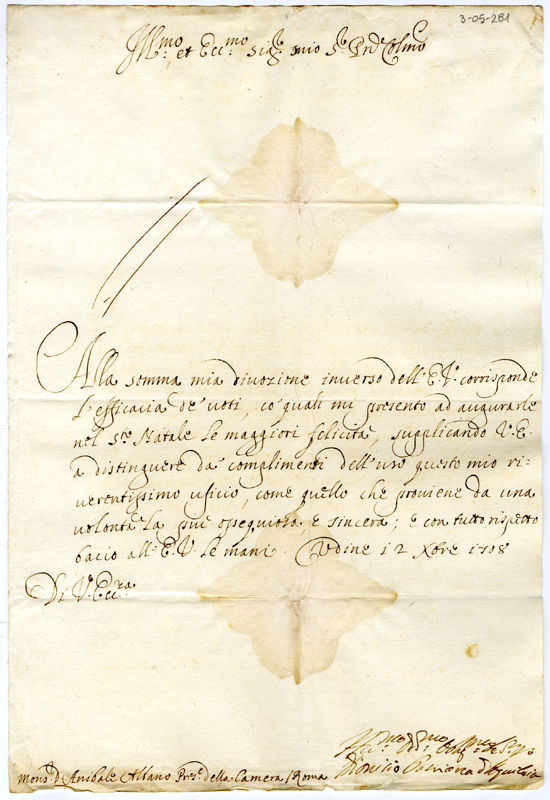 3-05-281
Ill.mo et Ecc.mo Sig.r mio S.r Prõe Colmo
Alla somma mia divozione inverso dell' E. V. corrisponde
l'efficacia de' voti, co' quali mi presento ad augurarle
nel S.to Natale le maggiori felicità, supplicando V. E.
a distinguere da complimenti dell' uso questo mio ri=
verentissimo uficio, come quello che proviene da una
volontà la più ossequiosa, e sincera; e con tutto rispetto
bacio all' E. V. le mani. Udine 12 Xbre 1708
Di V. Ecc.za
Dionisio d'Aquileia
Mons.r D. Anibale Albano Pres.e della Camera / Roma